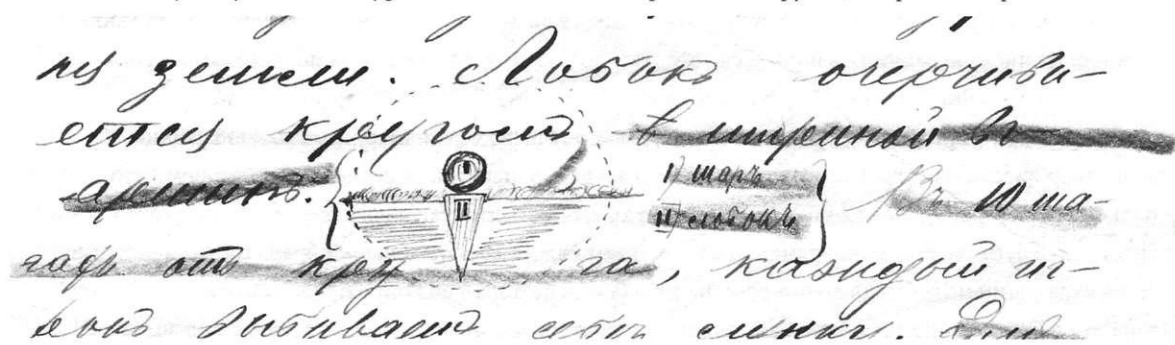 на земли. Лобокъ очерчива-
ется кругомъ въ шириной въ
аршинъ. I) шаръ II) лобокъ Въ 10 ша-
гахъ отъ круга, каждый иг-
рокъ выбиваетъ себѣ ямку. Для